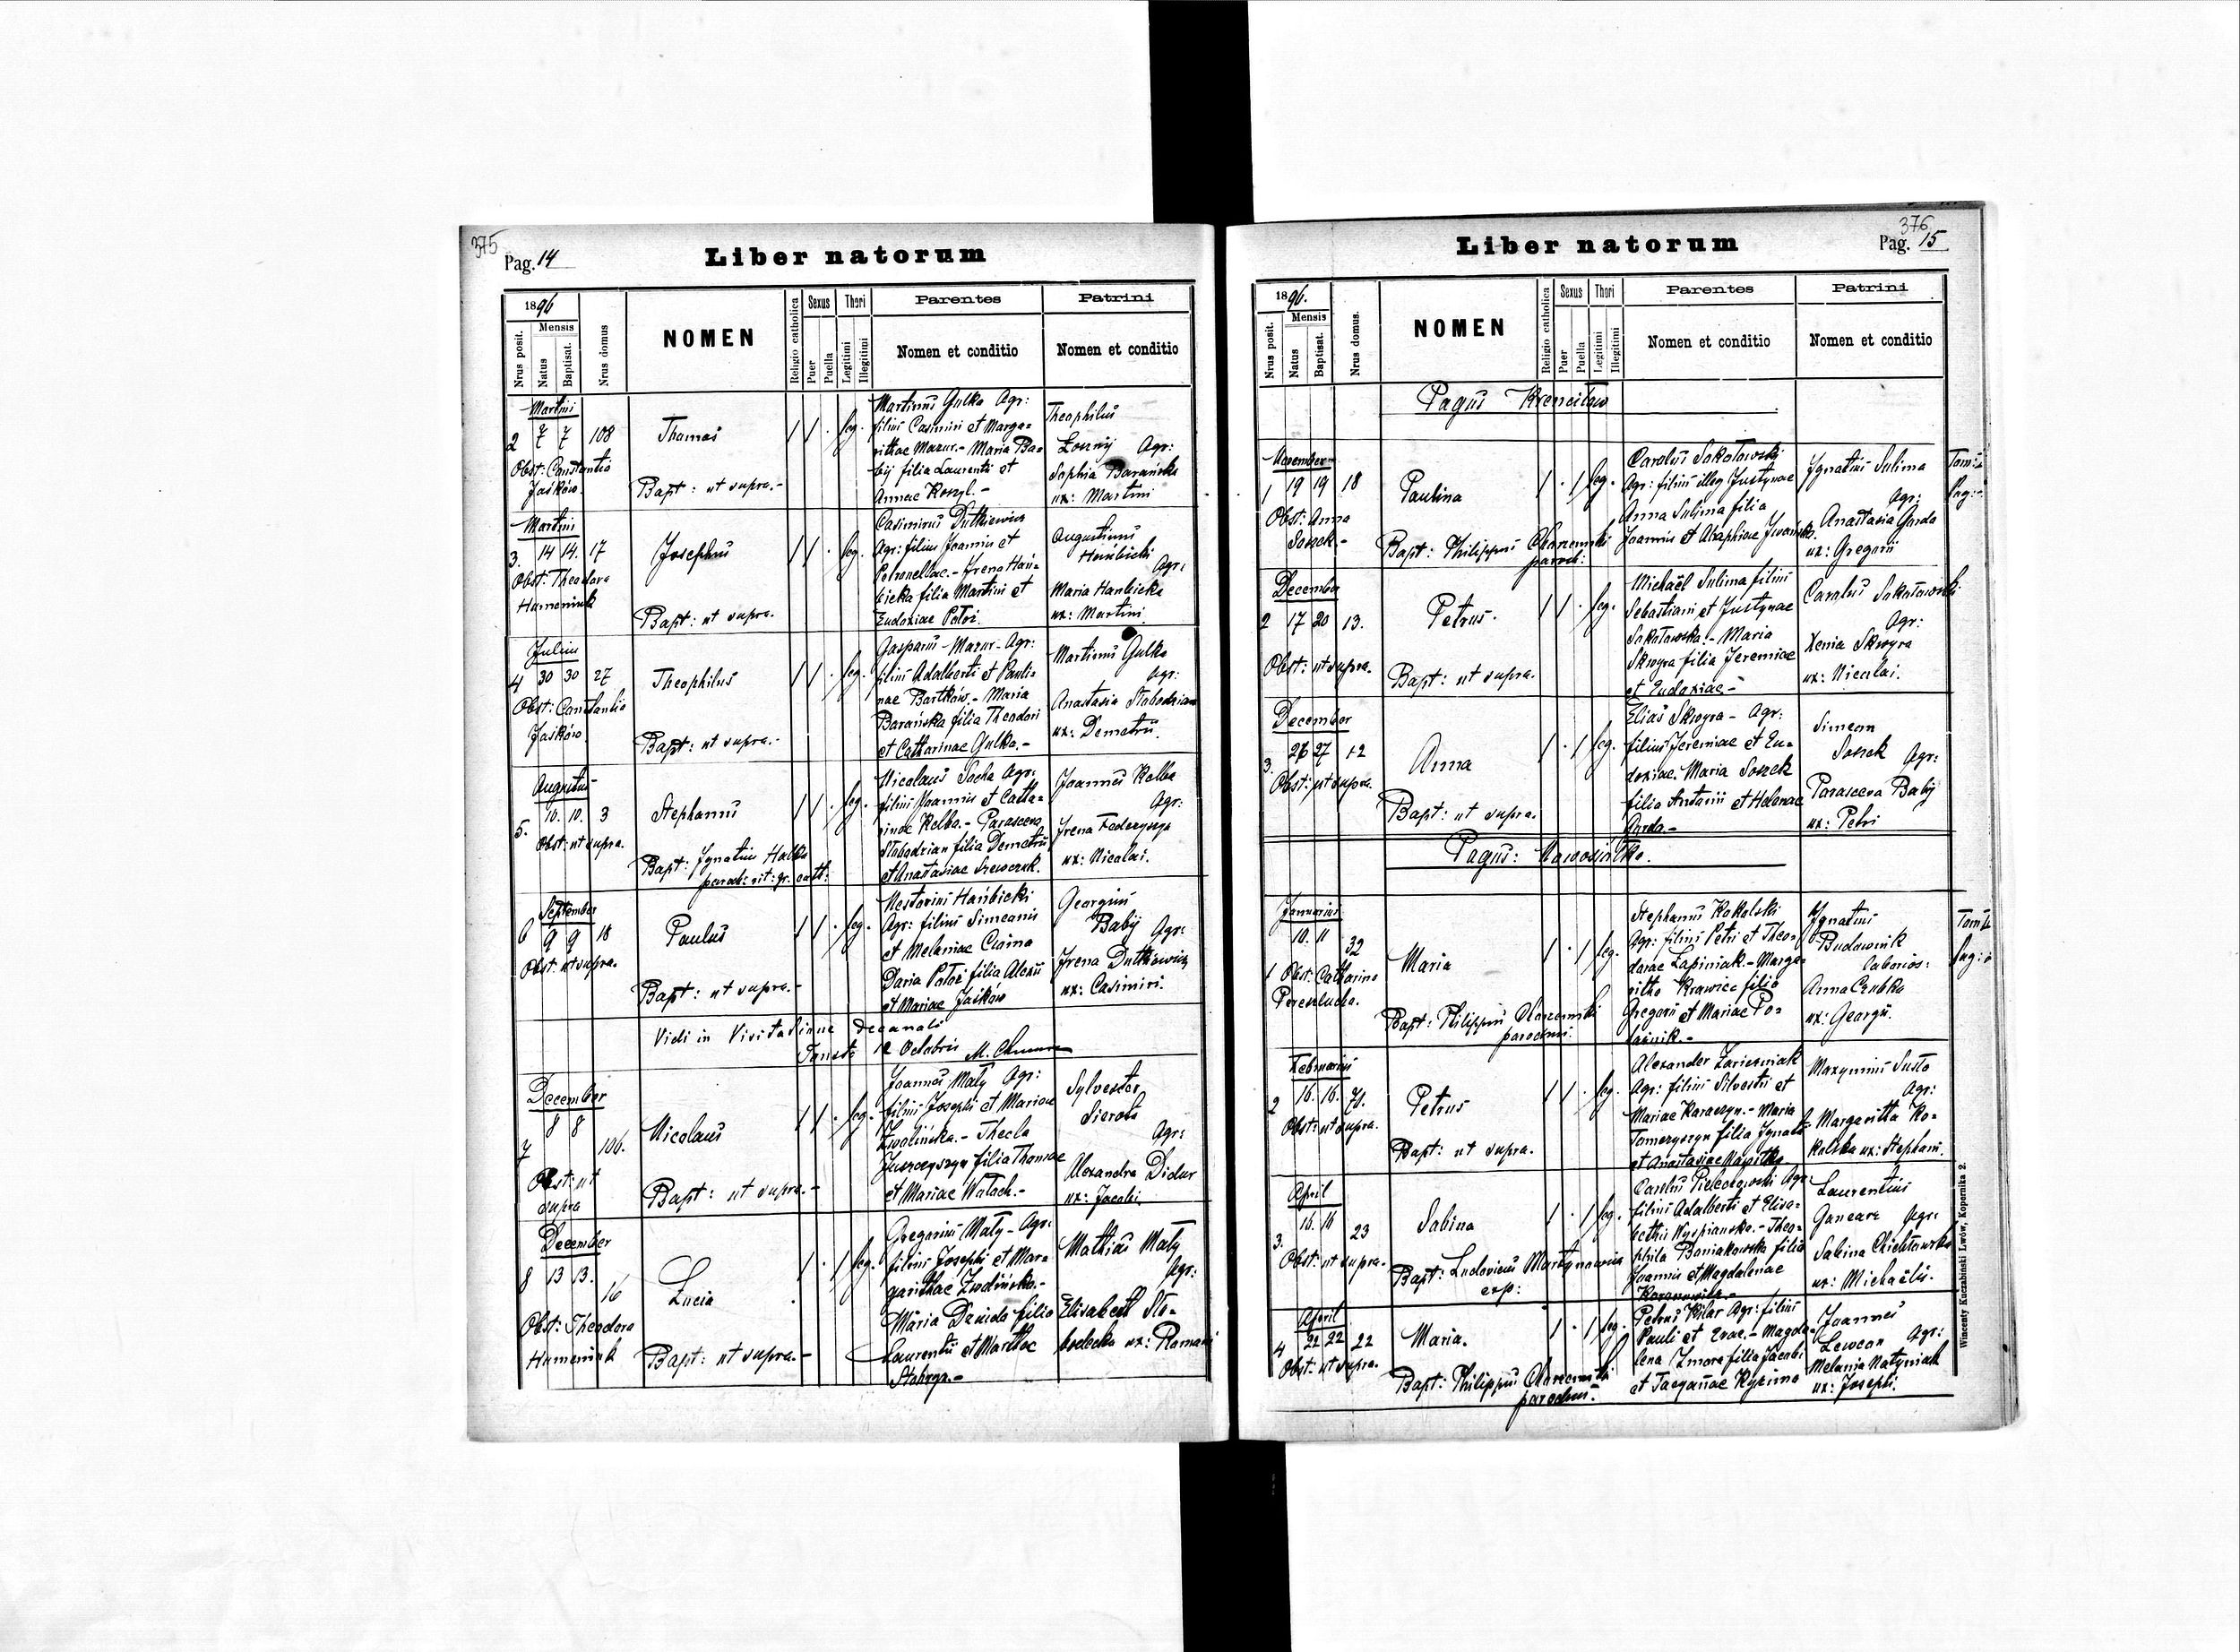 375
Pag. 14
Liber natorum
1896
Nrus posit.
Mensis
Natus
Baptisat.
Nrus domus
NOMEN
Religio catholica
Sexus
Puer
Puella
Thori
Legitimi
Illegitimi
Parentes
Nomen et conditio
Patrini
Nomen et conditio
Martius
2 7 7 108
Obst: Constantia
Jaśków.
Thomas
Bapt: ut supra.-
leg.
Martinus Gulka Agr:
filius Casimiri et Marga=
rithae Mazur.- Maria Ba=
bij filia Laurentii et
Annae Koszyl.-
Theophilus
Łoszny Agr:
Sophia Barańska
ux: Martini
Martius
3. 14 14. 17
Obst: Theodora
Humeniuk
Josephus
Bapt: ut supra.
leg.
Casimirus Dutkiewicz
Agr: filius Joannis et
Petronellae.- Irena Hań=
bicka filia Martini et
Eudoxiae Potoż.
Augustinus
Hańbicki
Agr:
Maria Hanbicka
ux: Martini.
Julius
4 30 30 27
Obst: Constantia
Jaśków.
Theophilus
Bapt: ut supra.-
leg.
Gasparus Mazur- Agr:
filius Adalberti et Pauli=
nae Bartków.- Maria
Barańska filia Theodori
et Catharinae Gulka.-
Martinus Gulka
Agr:
Anastasia Słobodzian
ux: Demetrii.
Augustus
5. 10. 10. 3
Obst: ut supra.
Stephanus
Bapt: Ignatius Halka
paroch: rit: gr. cath:
leg.
Nicolaus Socha Agr:
filius Joannis et Catha=
rinae Kelba.- Parascena
Słobodzian filia Demetrii
et Anastasiae Szewczuk.
Joannes Kelba
Agr:
Irena Federyszyn
ux: Nicolai.
September
6 9 9 18
Obst: ut supra.
Paulus
Bapt: ut supra.-
leg.
Nestorius Hańbicki
Agr: filius Simeonis
et Melaniae
Daria Potoż filia Alexii
et Mariae Jaśków
Georgius
Babij Agr:
Irena Dutkiewicz
ux: Casimiri.
Vidi in Visitatione Decanali
12 Octobris
December
8 8
7 106.
Obst: ut
supra
Nicolaus
Bapt: ut supra.-
leg.
Joannes Mały Agr:
filius Josephi et Mariae
Zwolińska.- Thecla
Juszczyszyn filia Thomae
et Mariae Wałach.-
Sylvester
Sierota
Agr:
Alexandra Didur
ux: Jacobi.
December
8 13 13. 16
Obst: Theodora
Humeniuk
Lucia
Bapt: ut supra.-
leg.
Gregorius Mały- Agr:
filius Josephi et Mar=
garithae Zwolińska.-
Maria Daniela filia
Laurentii et Marthae
Stahryn.-
Mathias Mały
Agr:
Elisabeth Sło=
bodecka ux: Romani
376
Pag. 15
Liber natorum
1896.
Nrus posit.
Mensis
Natus
Baptisat.
Nrus domus.
NOMEN
Religio catholica
Sexus
Puer
Puella
Thori
Legitimi
Illegitimi
Parentes
Nomen et conditio
Patrini
Nomen et conditio
Pagus Krenciłow
November
1 19 19 18
Obst: Anna
Soszek.-
Paulina
Bapt: Philippus
paroch:
leg.
Carolus Sokołowski
Agr: filius illeg Justynae
Anna Sulima filia
Joannis et
Ignatius Sulima
Agr:
Anastasia Garda
ux: Gregorii
December
2 17 20 13.
Obst: ut supra.
Petrus.
Bapt: ut supra.
leg.
Michaël Sulima filius
Sebastiani et Justynae
Sokołowska.- Maria
Skwyra filia Jeremiae
et Eudoxiae.-
Carolus Sokołowski
Agr:
Xenia Skwyra
ux: Nicolai.
December
3. 26 27 12
Obst: ut supra.
Anna
Bapt: ut supra.
leg.
Elias Skwyra - Agr:
filius Jeremiae et Eu=
doxiae. Maria Soszek
filia Antonii et Helenae
Garda.-
Simeon
Soszek Agr:
Parascena Babij
ux: Petri
Pagus: Nowosiółka.
Januarius
10. 11 32
1 Obst: Catharina
Perczłucka.
Maria
Bapt: Philippus
parochus.
leg.
Stephanus Kokolski
Agr: filius Petri et Theo=
dorae Łapiniak.- Marga=
ritha Krawiec filia
Gregorii et Mariae Po=
Ignatius
Budownik
laborios:
Anna Czubka
ux: Georgii.
Februarius
2 16. 16. 70.
Obst: ut supra.
Petrus
Bapt: ut supra.
leg.
Alexander Zarieczniak
Agr: filius Silvestri et
Mariae Karaczyn.- Maria
Tomczyszyn filia Ignatii
et Anastasiae
Maxyminus Susło
Agr:
Margaritha Ko=
kolska ux: Stephani.
April
3. 16. 16 23
Obst: ut supra.
Sabina
Bapt: Ludovicus Martynowicz
exp:
leg.
Carolus Agr
filius Adalberti et Elisa=
bethae Wyspianska.- Theo=
phila Boniakowska filia
Joannis et Magdalenae
Laurentius
Goncarz Agr:
Sabina
ux: Michaëlis.
April
4 22 22 22
Obst: ut supra.
Maria.
Bapt: Philippus
parochus.
leg.
Petrus Kilar Agr: filius
Pauli et Evae.- Magda=
lena Zmora filia Jacobi
et Tacyannae Kyzima
Joannes
Lewcon Agr:
Melania Natyniak
ux: Josephi.
Wincenty Kuczabiński Lwów, Kopernika 2.